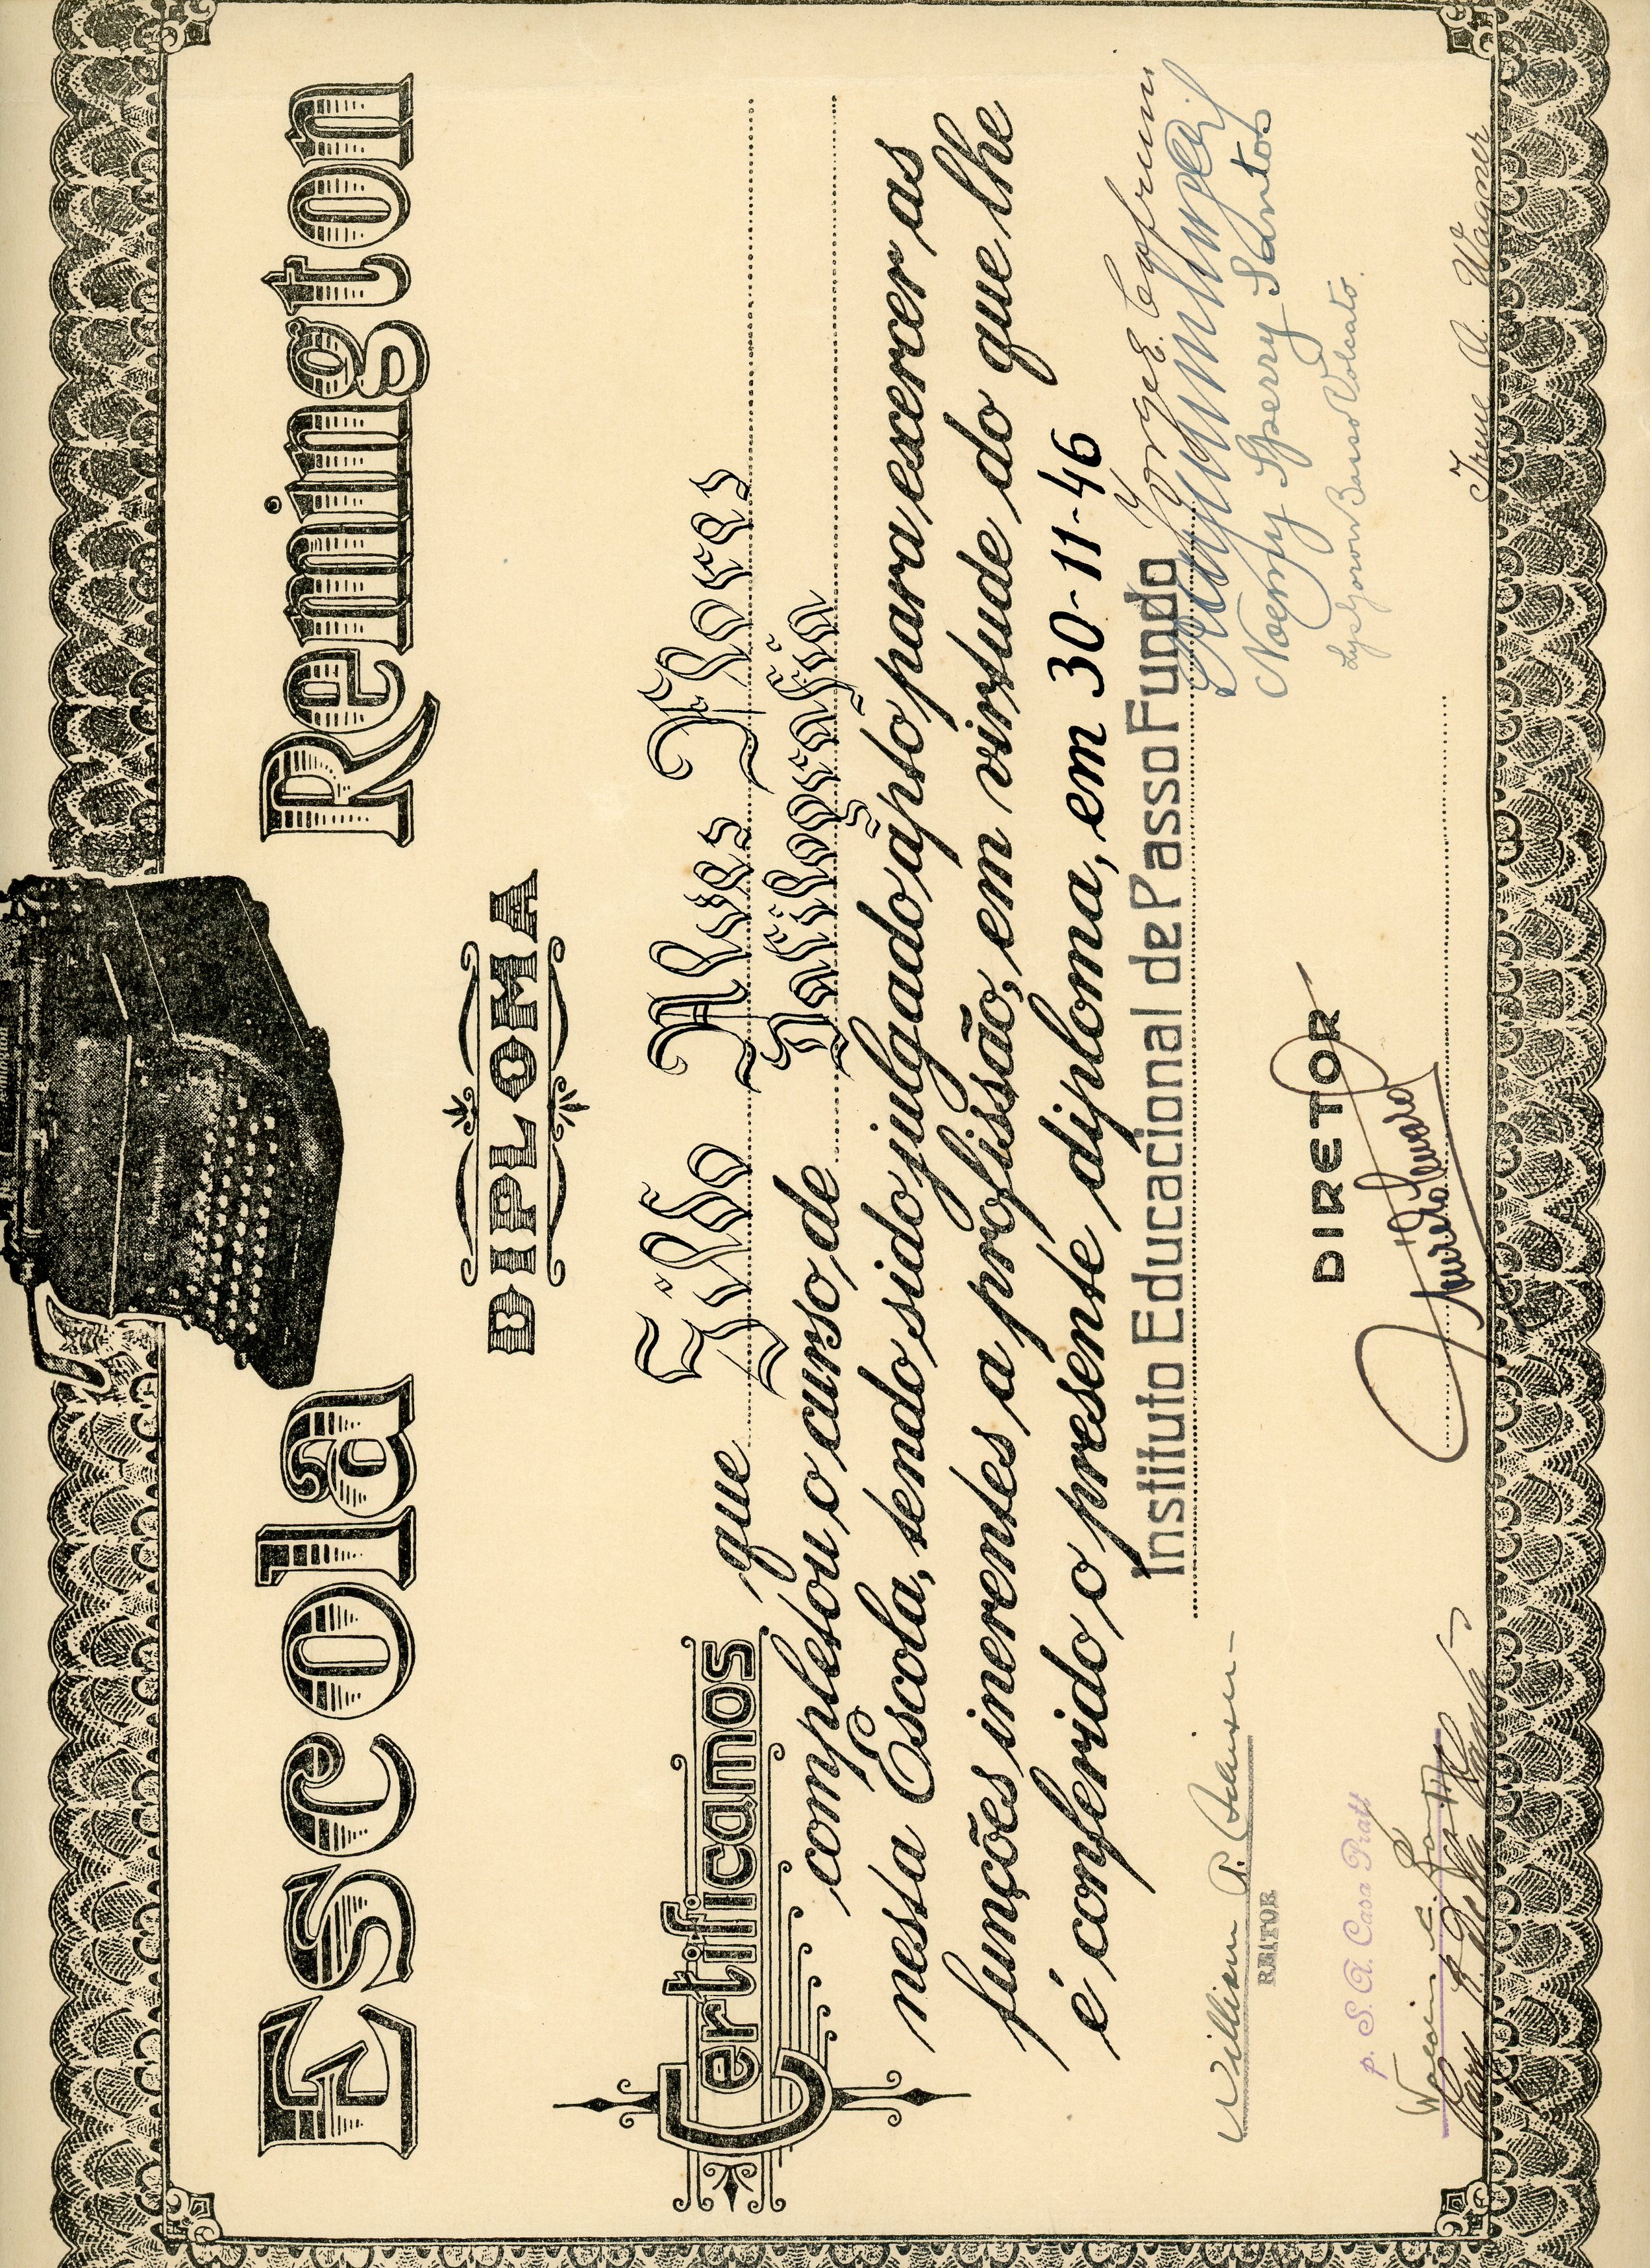 Escola Remington
DIPLOMA
Certificamos que Gildo Alves Flores
completou o curso, de Datilografia
nesta Escola, tendo sido julgado apto para exercer as
funções inerentes a profissão, em virtude do que lhe
é conferido o presente diploma, em 30-11-46
Instituto Educacional de Passo Fundo
Jorge E.
William R.
REITOR
Noemy Sperry Santos
DIRETOR
p. S. A. Casa Pratt
A. Wagner